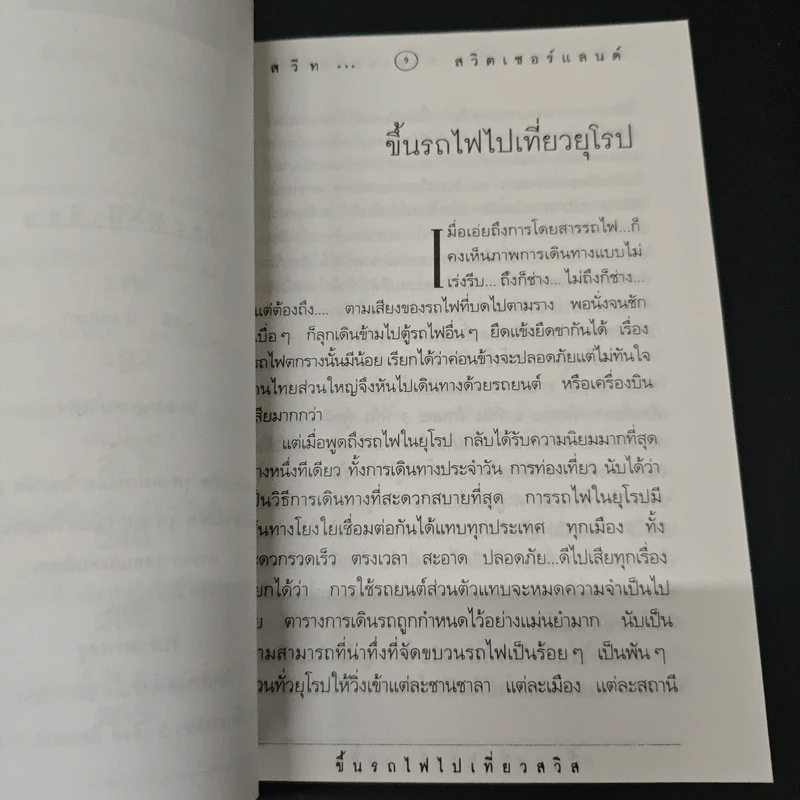 สวีท ... ๑ สวิตเซอร์แลนด์
ขึ้นรถไฟไปเที่ยวยุโรป
เมื่อเอ่ยถึงการโดยสารรถไฟ...ก็
คงเห็นภาพการเดินทางแบบไม่
เร่งรีบ... ถึงก็ช่าง... ไม่ถึงก็ช่าง...
แต่ต้องถึง.... ตามเสียงของรถไฟที่บดไปตามราง พอนั่งจนชัก
เบื่อๆ ก็ลุกเดินข้ามไปตู้รถไฟอื่นๆ ยืดแข้งยืดขากันได้ เรื่อง
รถไฟตกรางนั้นมีน้อย เรียกได้ว่าค่อนข้างจะปลอดภัยแต่ไม่ทันใจ
านไทยส่วนใหญ่จึงหันไปเดินทางด้วยรถยนต์ หรือเครื่องบิน
สียมากกว่า
แต่เมื่อพูดถึงรถไฟในยุโรป กลับได้รับความนิยมมากที่สุด
างหนึ่งทีเดียว ทั้งการเดินทางประจำวัน การท่องเที่ยว นับได้ว่า
ป็นวิธีการเดินทางที่สะดวกสบายที่สุด การรถไฟในยุโรปมี
ส้นทางโยงใยเชื่อมต่อกันได้แทบทุกประเทศ ทุกเมือง ทั้ง
ะดวกรวดเร็ว ตรงเวลา สะอาด ปลอดภัย...ดีไปเสียทุกเรื่อง
ยกได้ว่า การใช้รถยนต์ส่วนตัวแทบจะหมดความจำเป็นไป
ย ตารางการเดินรถถูกกำหนดไว้อย่างแม่นยำมาก นับเป็น
ามสามารถที่น่าทึ่งที่จัดขบวนรถไฟเป็นร้อยๆ เป็นพันๆ
วนทั่วยุโรปให้วิ่งเข้าแต่ละชานชาลา แต่ละเมือง แต่ละสถานี
ขึ้นรถไฟไปเที่ยวสวิส